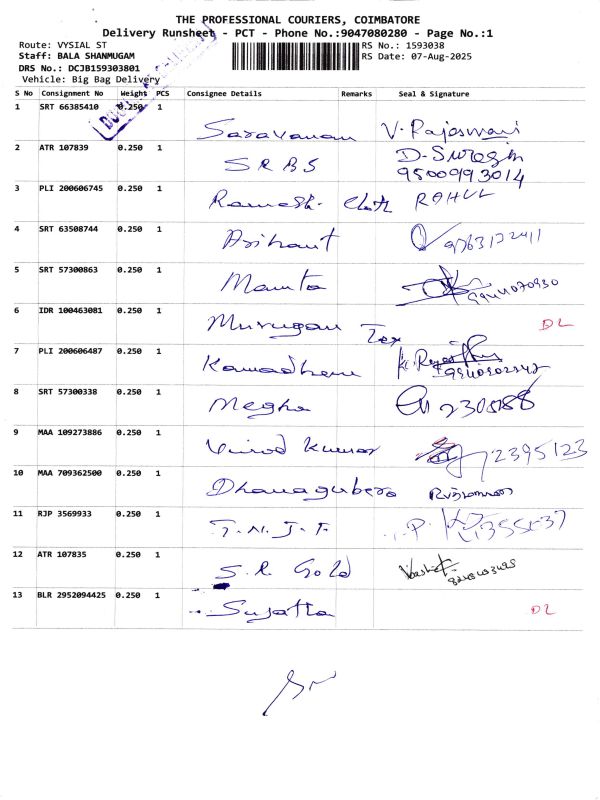 THE PROFESSIONAL COURIERS, COIMBATORE
Delivery Runsheet - PCT - Phone No.:9047080280 - Page No.:1
Route: VYSIAL ST
RS No.: 1593038
Staff: BALA SHANMUGAM
RS Date: 07-Aug-2025
DRS No.: DCJB159303801
Vehicle: Big Bag Delivery
S No Consignment No Weight PCS Consignee Details Remarks Seal & Signature
1 SRT 66385410 0.250 1 Saravanan V. Rajeswari
2 ATR 107839 0.250 1 SRBS
9500993014
3 PLI 200606745 0.250 1 Ramesh. Cloth RAHUL
4 SRT 63508744 0.250 1 Arihant
5 SRT 57300863 0.250 1 Mamta
6 IDR 100463081 0.250 1 Murugan Tex DL
7 PLI 200606487 0.250 1 Kamadhenu
8 SRT 57300338 0.250 1 Megha
9 MAA 109273886 0.250 1 Vinod Kumar 72395123
10 MAA 709362500 0.250 1 Dhanagubera
11 RJP 3569933 0.250 1 T.N.J.F.
12 ATR 107835 0.250 1 S.R. Gold
13 BLR 2952094425 0.250 1 Sujatha DL